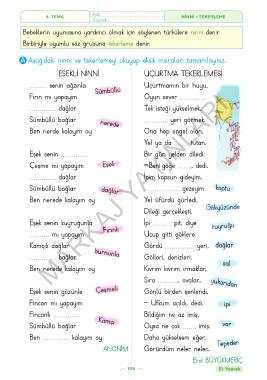 4. TEMA
NİNNİ - TEKERLEME
Bebeklerin uyumasına yardımcı olmak için söylenen türkülere ninni denir.
Birbiriyle uyumlu söz grubuna tekerleme denir.
A Aşağıdaki ninni ve tekerlemeyi okuyup eksik mısraları tamamlayınız.
EŞEKLİ NİNNİ
.............. senin ağzınla
Fırın mı yapayım
.............. dağlar
Sümbüllü bağlar
Ben nerede kalam oy
Eşek senin ..............
Çeşme mi yapayım
.............. dağlar
Sümbüllü bağlar
Ben nerede kalayım oy
Eşek senin kuyruğunla
.............. mı yapayım
Kamçılı dağlar
.............. bağlar
Ben nerede kalayım oy
Eşek senin gözünle
Fincan mı yapayım
Fincanlı ..............
Sümbüllü bağlar
Ben .............. kalayım oy
ANONİM
Sümbüllü
nerede
Eşek
dağlar
Fırınlı
burnunla
Çeşmeli
Kamçı
UÇURTMA TEKERLEMESİ
Uçurtmamın bir huyu,
Oyun sever ..............
Tek isteği yükselmek,
.............. yeri görmek.
Ona hep engel olan,
Yel ya da .......... tutan.
Bir gün yelden diledi:
İpim kopsun gideyim,
.............. gezeyim.
Yel üfürdü gürledi,
Dileği gerçekleşti.
.......... pıt, diye
Uçup gitti göklere.
Gördü .......... yeri,
Gölleri, denizleri.
Kıvrım kıvrım ırmaklar,
Sıra .........., ovalar.
Gönlü birden şenlendi,
Bildiğim ne az imiş,
Oysa ne çok ...... imiş.
Daha yükselsem eğer,
Görürdüm neler neler..
Erol BÜYÜKMERİÇ
koptu
Gökyüzünde
kuyruğu
dağlar
sal
yukarıdan
ipi
var
Tepeden
MARKAJ YAYINLARI
106
10. Yaprak